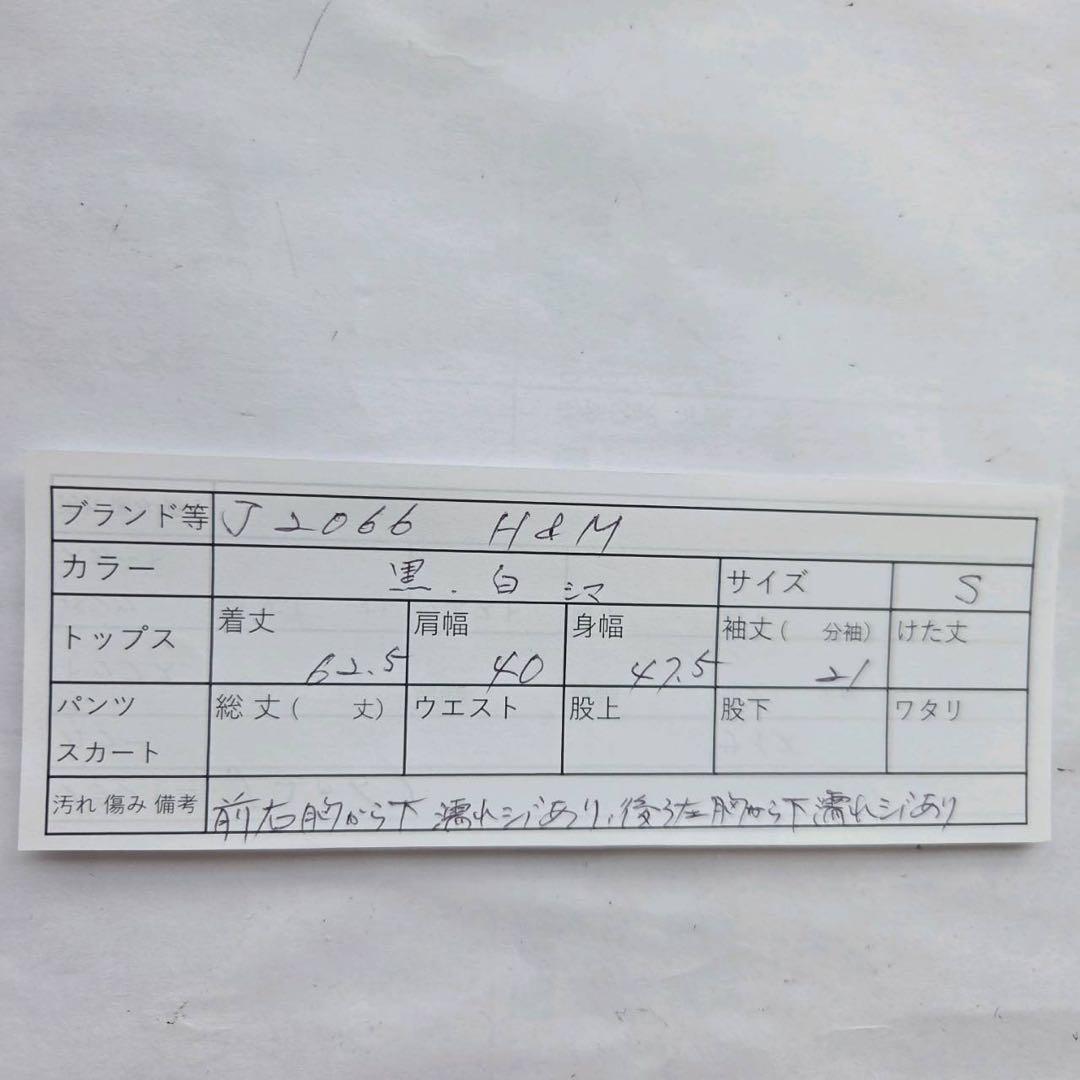 ブランド等 J2066 H&M
カラー 黒.白 シマ サイズ S
トップス 着丈 62.5 肩幅 40 身幅 47.5 袖丈( 分袖) 21 けた丈
パンツ スカート 総丈( 丈) ウエスト 股上 股下 ワタリ
汚れ 傷み 備考 前右胸から下 濡れジミあり、後ろ左胸から下濡れジミあり